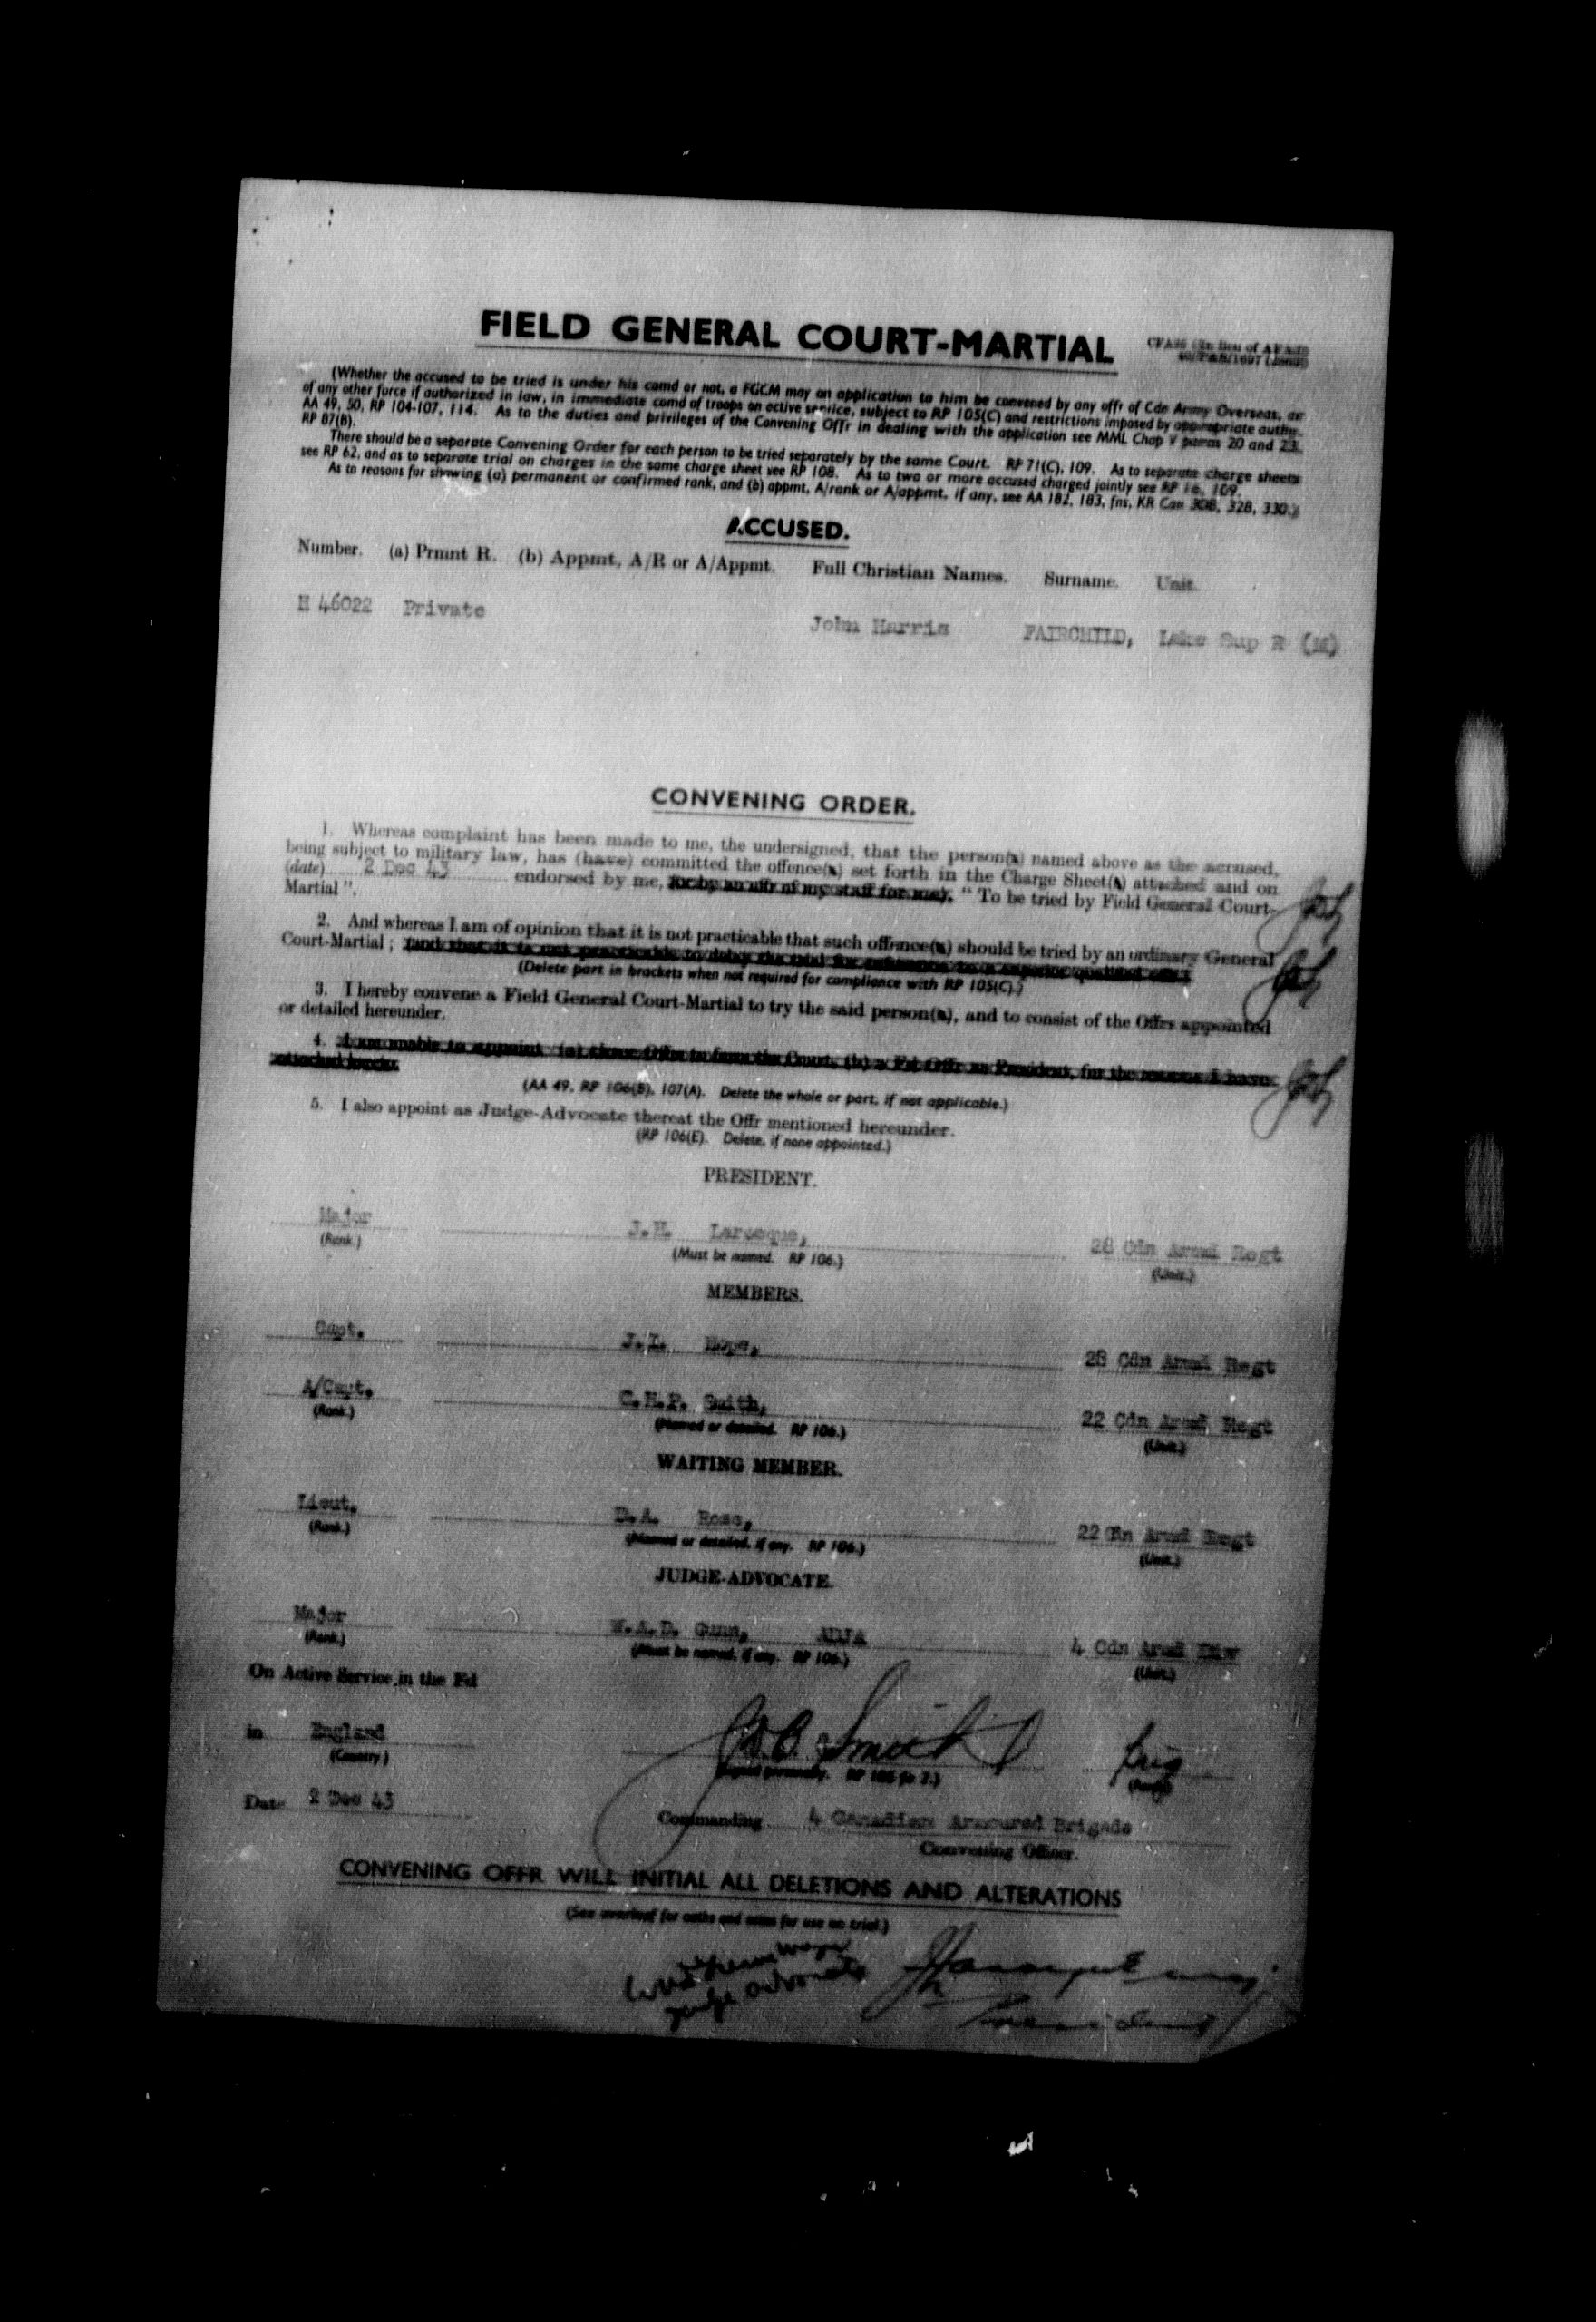 FIELD GENERAL COURT-MARTIAL
(Whether the accused to be tried is under his comd or not, a FGCM may on application to him be convened by any offr of Cdn Army Overseas, or
of any other force if authorized in law, in immediate comd of troops on active service, subject to RP 105(C) and restrictions imposed by appropriate authy.
AA 49, 50, RP 104-107, 114. As to the duties and privileges of the Convening Offr in dealing with the application see MML Chap V paras 20 and 23.
RP 87(B).
There should be a separate Convening Order for each person to be tried separately by the same Court. RP 71(C), 109. As to separate charge sheets
see RP 62, and as to separate trial on charges in the same charge sheet see RP 108. As to two or more accused charged jointly see RP 16, 109.
As to reasons for showing (a) permanent or confirmed rank, and (b) appmt, A/rank or A/appmt, if any, see AA 182, 183, fns, KR Can 308, 328, 330.)
ACCUSED.
Number. (a) Prmnt R. (b) Appmt, A/R or A/Appmt. Full Christian Names. Surname. Unit.
H 46022 Private John Harris FAIRCHILD, Lake Sup R (M)
CONVENING ORDER.
1. Whereas complaint has been made to me, the undersigned, that the person(s) named above as the accused,
being subject to military law, has (have) committed the offence(s) set forth in the Charge Sheet(s) attached and on
(date) 2 Dec 43 endorsed by me, (or by an offr of my staff for me), " To be tried by Field General Court-
Martial ".
2. And whereas I am of opinion that it is not practicable that such offence(s) should be tried by an ordinary General
Court-Martial ; (and that it is not practicable to delay the trial for reference to a superior qualified offr.)
(Delete part in brackets when not required for compliance with RP 105(C).)
3. I hereby convene a Field General Court-Martial to try the said person(s), and to consist of the Offrs appointed
or detailed hereunder.
4. I am unable to appoint (a) three Offrs to form the Court, (b) a Fd Offr as President, for the reasons I have
attached hereto.
(AA 49, RP 106(B), 107(A). Delete the whole or part, if not applicable.)
5. I also appoint as Judge-Advocate thereat the Offr mentioned hereunder.
(RP 106(E). Delete, if none appointed.)
PRESIDENT.
Major J.H. Larocque, 28 Cdn Armd Regt
(Rank.) (Must be named. RP 106.) (Unit.)
MEMBERS.
Capt. J.L. 28 Cdn Armd Regt
A/Capt. C.H.P. Smith, 22 Cdn Armd Regt
(Rank.) (Named or detailed. RP 106.) (Unit.)
WAITING MEMBER.
Lieut. D.A. Rose, 22 Armd Regt
(Rank.) (Named or detailed, if any. RP 106.) (Unit.)
JUDGE-ADVOCATE.
Major W.A.D. Gunn, ADJA 4 Cdn Armd Div
(Rank.) (Must be named, if any. RP 106.) (Unit.)
On Active Service in the Fd
in England
(Country) Smith Brig
(Signed personally. RP 106 fn 2.) (Rank)
Date 2 Dec 43
Commanding 4 Canadian Armoured Brigade
Convening Officer.
CONVENING OFFR WILL INITIAL ALL DELETIONS AND ALTERATIONS
(See overleaf for oaths and notes for use on trial.)
judge advocate
President